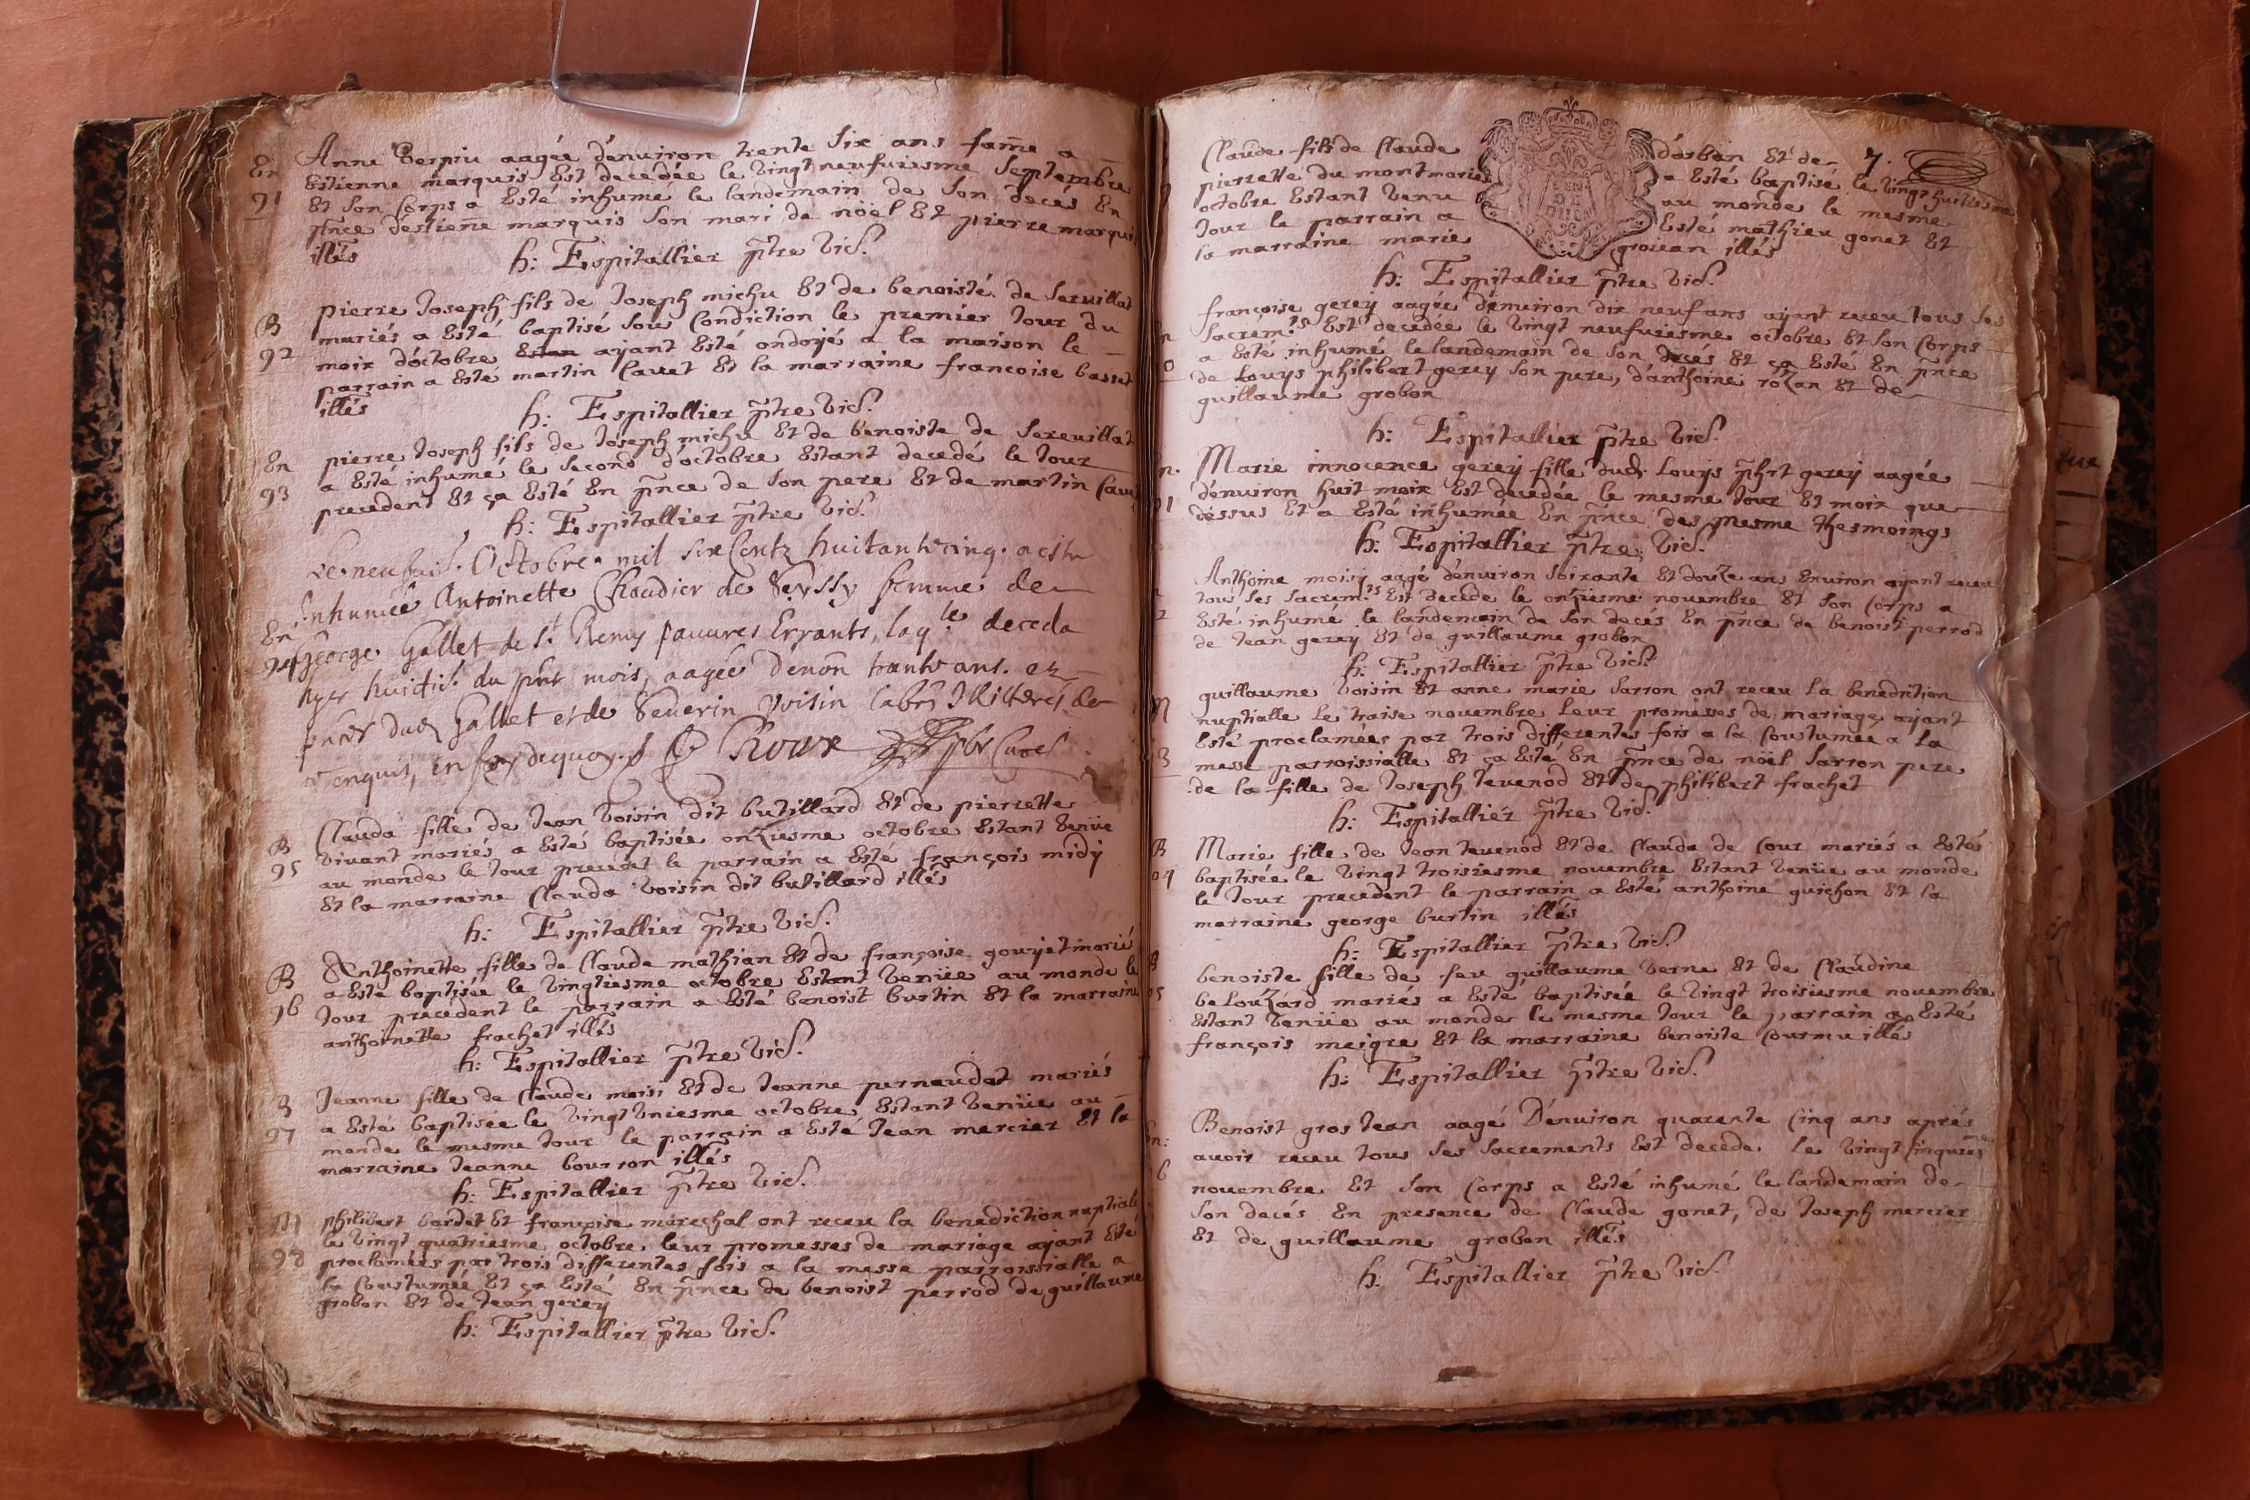 En
91
Anne aagée d'environ trente six ans fam̄e a
Estienne marquis Est decedée le vingt neufuiesme Septembre
Et son corps a Esté inhumé le landemain de son decés En
pn̄ce d'estien̄e marquis son mari de nöel Et pierre marquis
illés
h: Espitallier p̄tre vic.
B
92
pierre Joseph fils de Joseph michu Et de benoiste de Sereuillat
mariés a Esté baptisé sou Condiction le premier Jour du
moix d'octobre ayant Esté ondoyé a la maison le
parrain a Esté martin Cauet Et la marraine francoise basset
illés
h: Espitallier p̄tre vic.
En
93
pierre Joseph fils de Joseph michu Et de benoiste de Sereuillat
a Esté inhumé le second d'octobre Estant decedé le Jour
precedent Et ça Esté En pn̄ce de son pere Et de martin Cauet
h: Espitallier p̄tre vic.
En
94
Le neufuie. Octobre mil six Centz huitante cinq a este
Inhumée Antoinette Chaudier de Seyssy femme de
George Gallet de St Remy pauures Errants, laqle deceda
hyer huictie. du pnt mois, aagée denon̄ trante ans. ez
pnces dud Gallet et de Seuerin Voisin labrs Illicteres de
enquis, en foy dequoy. Roux pbr Curé
B
95
Clauda fille de Jean voisin dit butillard Et de pierrette
viuant mariés a Esté baptisée onziesme octobre Estant venüe
au monde le Jour precedt le parrain a Esté françois midy
Et la marraine Clauda voisin dit butillard illés
h: Espitallier p̄tre vic.
B
96
Anthoinette fille de Claude mathian Et de françoise gouyet mariés
a Esté baptisée le vingtiesme octobre Estant venüe au monde le
Jour precedent le parrain a Esté benoist burtin Et la marraine
anthoinette frachet illés
h: Espitallier p̄tre vic.
B
97
Jeanne fille de Claude moisi Et de Jeanne pernaudat mariés
a Esté baptisée le vingt vniesme octobre Estant venüe au
monde le mesme Jour le parrain a Esté Jean mercier Et la
marraine Jeanne bourron illés
h: Espitallier p̄tre vic.
M
98
philibert bardet Et françoise marechal ont receu la benediction nuptialle
le vingt quatriesme octobre leur promesses de mariage ayant Esté
proclamées par trois differentes fois a la messe parroissialle a
la Coustumée Et ça Esté En pn̄ce de benoist perrod de guillaume
grobon Et de Jean gerey
h: Espitallier p̄tre vic.
7.
Claude fils de Claude d'arban Et de
pierrette du mont mariés a Esté baptisé le vingt huitiesme
octobre Estant venu au monde le mesme
Jour le parrain a Esté mathieu gonet Et
la marraine marie grozan illés
h: Espitallier p̄tre vic.
françoise gerey aagée d'enuiron dix neuf ans ayant receu tous ses
Sacremts Est decedée le vingt neufuiesme octobre Et son Corps
a Esté inhumé le landemain de son decés Et ça Esté En pn̄ce
de Louys philibert gerey son pere, d'anthoine rozan Et de
guillaume grobon
h: Espitallier p̄tre vic.
Marie innocence gerey fille dud. Louys phbt gerey aagée
d'enuiron huit moix Est decedée le mesme Jour Et moix que
dessus Et a Esté inhumée En pn̄ce des mesme thesmoings
h: Espitallier p̄tre vic.
Anthoine moisy aagé d'enuiron Soixante Et douze ans Enuiron ayant receu
tous ses sacremts Est decede le onziesme nouembre Et son Corps a
Esté inhumé le landemain de son decés En pn̄ce de benoist perrod
de Jean gerey Et de guillaume grobon
h: Espitallier p̄tre vic.
guillaume voisin Et anne marie Sarron ont receu la benediction
nuptialle le traise nouembre Leur promesses de mariage ayant
Esté proclamées par trois differentes fois a la Coustumée a La
messe parroissialle Et ça Esté En pn̄ce de nöel Sarron pere
de la fille de Joseph teuenod Et de philibert frachet
h: Espitallier p̄tre vic.
B
Marie fille de Jean teuenod Et de Clauda de Cour mariés a Esté
baptisée le vingt troisiesme nouembre Estant venüe au monde
le Jour precedent le parrain a Esté anthoine guichon Et la
marraine george burtin illés
h: Espitallier p̄tre vic.
benoiste fille de feu guillaume verne Et de Claudine
belouzard mariés a Esté baptisée le vingt troisiesme nouembre
Estant venüe au monde le mesme Jour le parrain a Esté
françois meigre Et la marraine benoiste Cournu illés
h: Espitallier p̄tre vic.
Benoist gros Jean aagé D'enuiron quarente Cinq ans aprés
auoir receu tous ses Sacrements Est decede le vingt Cinquiesme
nouembre Et son Corps a Esté inhumé le landemain de
son decés En presence de Claude gonet, de Joseph mercier
Et de guillaume grobon illés
h: Espitallier p̄tre vic.